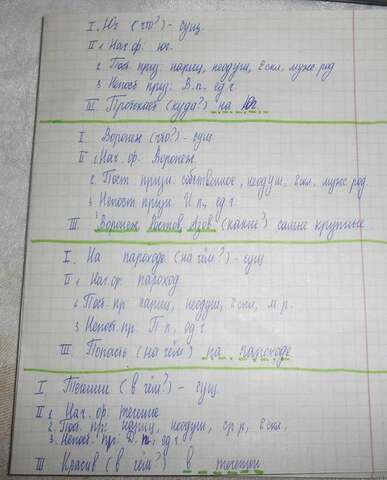 I. Юг (что?) - сущ.
II 1. Нач. ф. юг.
2. Пост. приз. нариц, неодуш, 2 скл, муж. род
3. Непост. приз: В.п, ед.ч.
III. Проехал (куда?) на Юг.
I. Воронеж (что?) - сущ.
II 1. Нач. ф. Воронеж.
2. Пост. призн. собственное, неодуш, 2 скл, муж. род.
3. Непост. призн И.п, ед.ч.
III. Воронеж, Ростов, Азов (какие?) самые крупные
I. На пароходе (на чём?) - сущ
II 1. Нач. ф. пароход
2. Пост. пр. нариц, неодуш, 2 скл, м.р.
3. Непост. пр. П.п, ед.ч.
III. Попасть (на чём) на пароходе
I. Течении (в чём?) - сущ.
II 1. Нач. ф. течение
2. Пост. пр: нариц, неодуш, ср.р, 2 скл.
3. Непост. пр: П.п, ед.ч
III Красив (в чём?) в течении